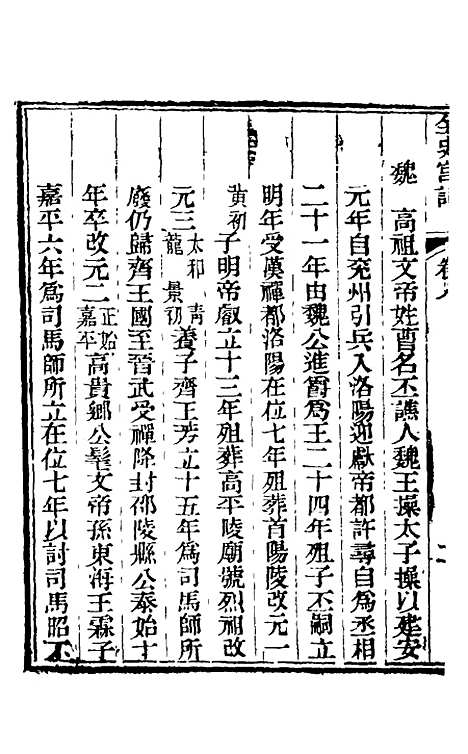 全史宮詞
卷八
魏　高祖文帝姓曹名丕譙人魏王操太子操以建安
元年自兗州引兵入洛陽迎獻帝都許尋自爲丞相
二十一年由魏公進爵爲王二十四年殂子丕嗣立
明年受漢禪都洛陽在位七年殂葬首陽陵改元一
黃初子明帝叡立十三年殂葬高平陵廟號烈祖改
元三太和青龍景初養子齊王芳立十五年爲司馬師所
廢仍歸齊王國至晉武受禪降封邵陵縣公泰始十
年卒改元二正始嘉平高貴鄉公髦文帝孫東海王霖子
嘉平六年爲司馬師所立在位七年以討司馬昭不